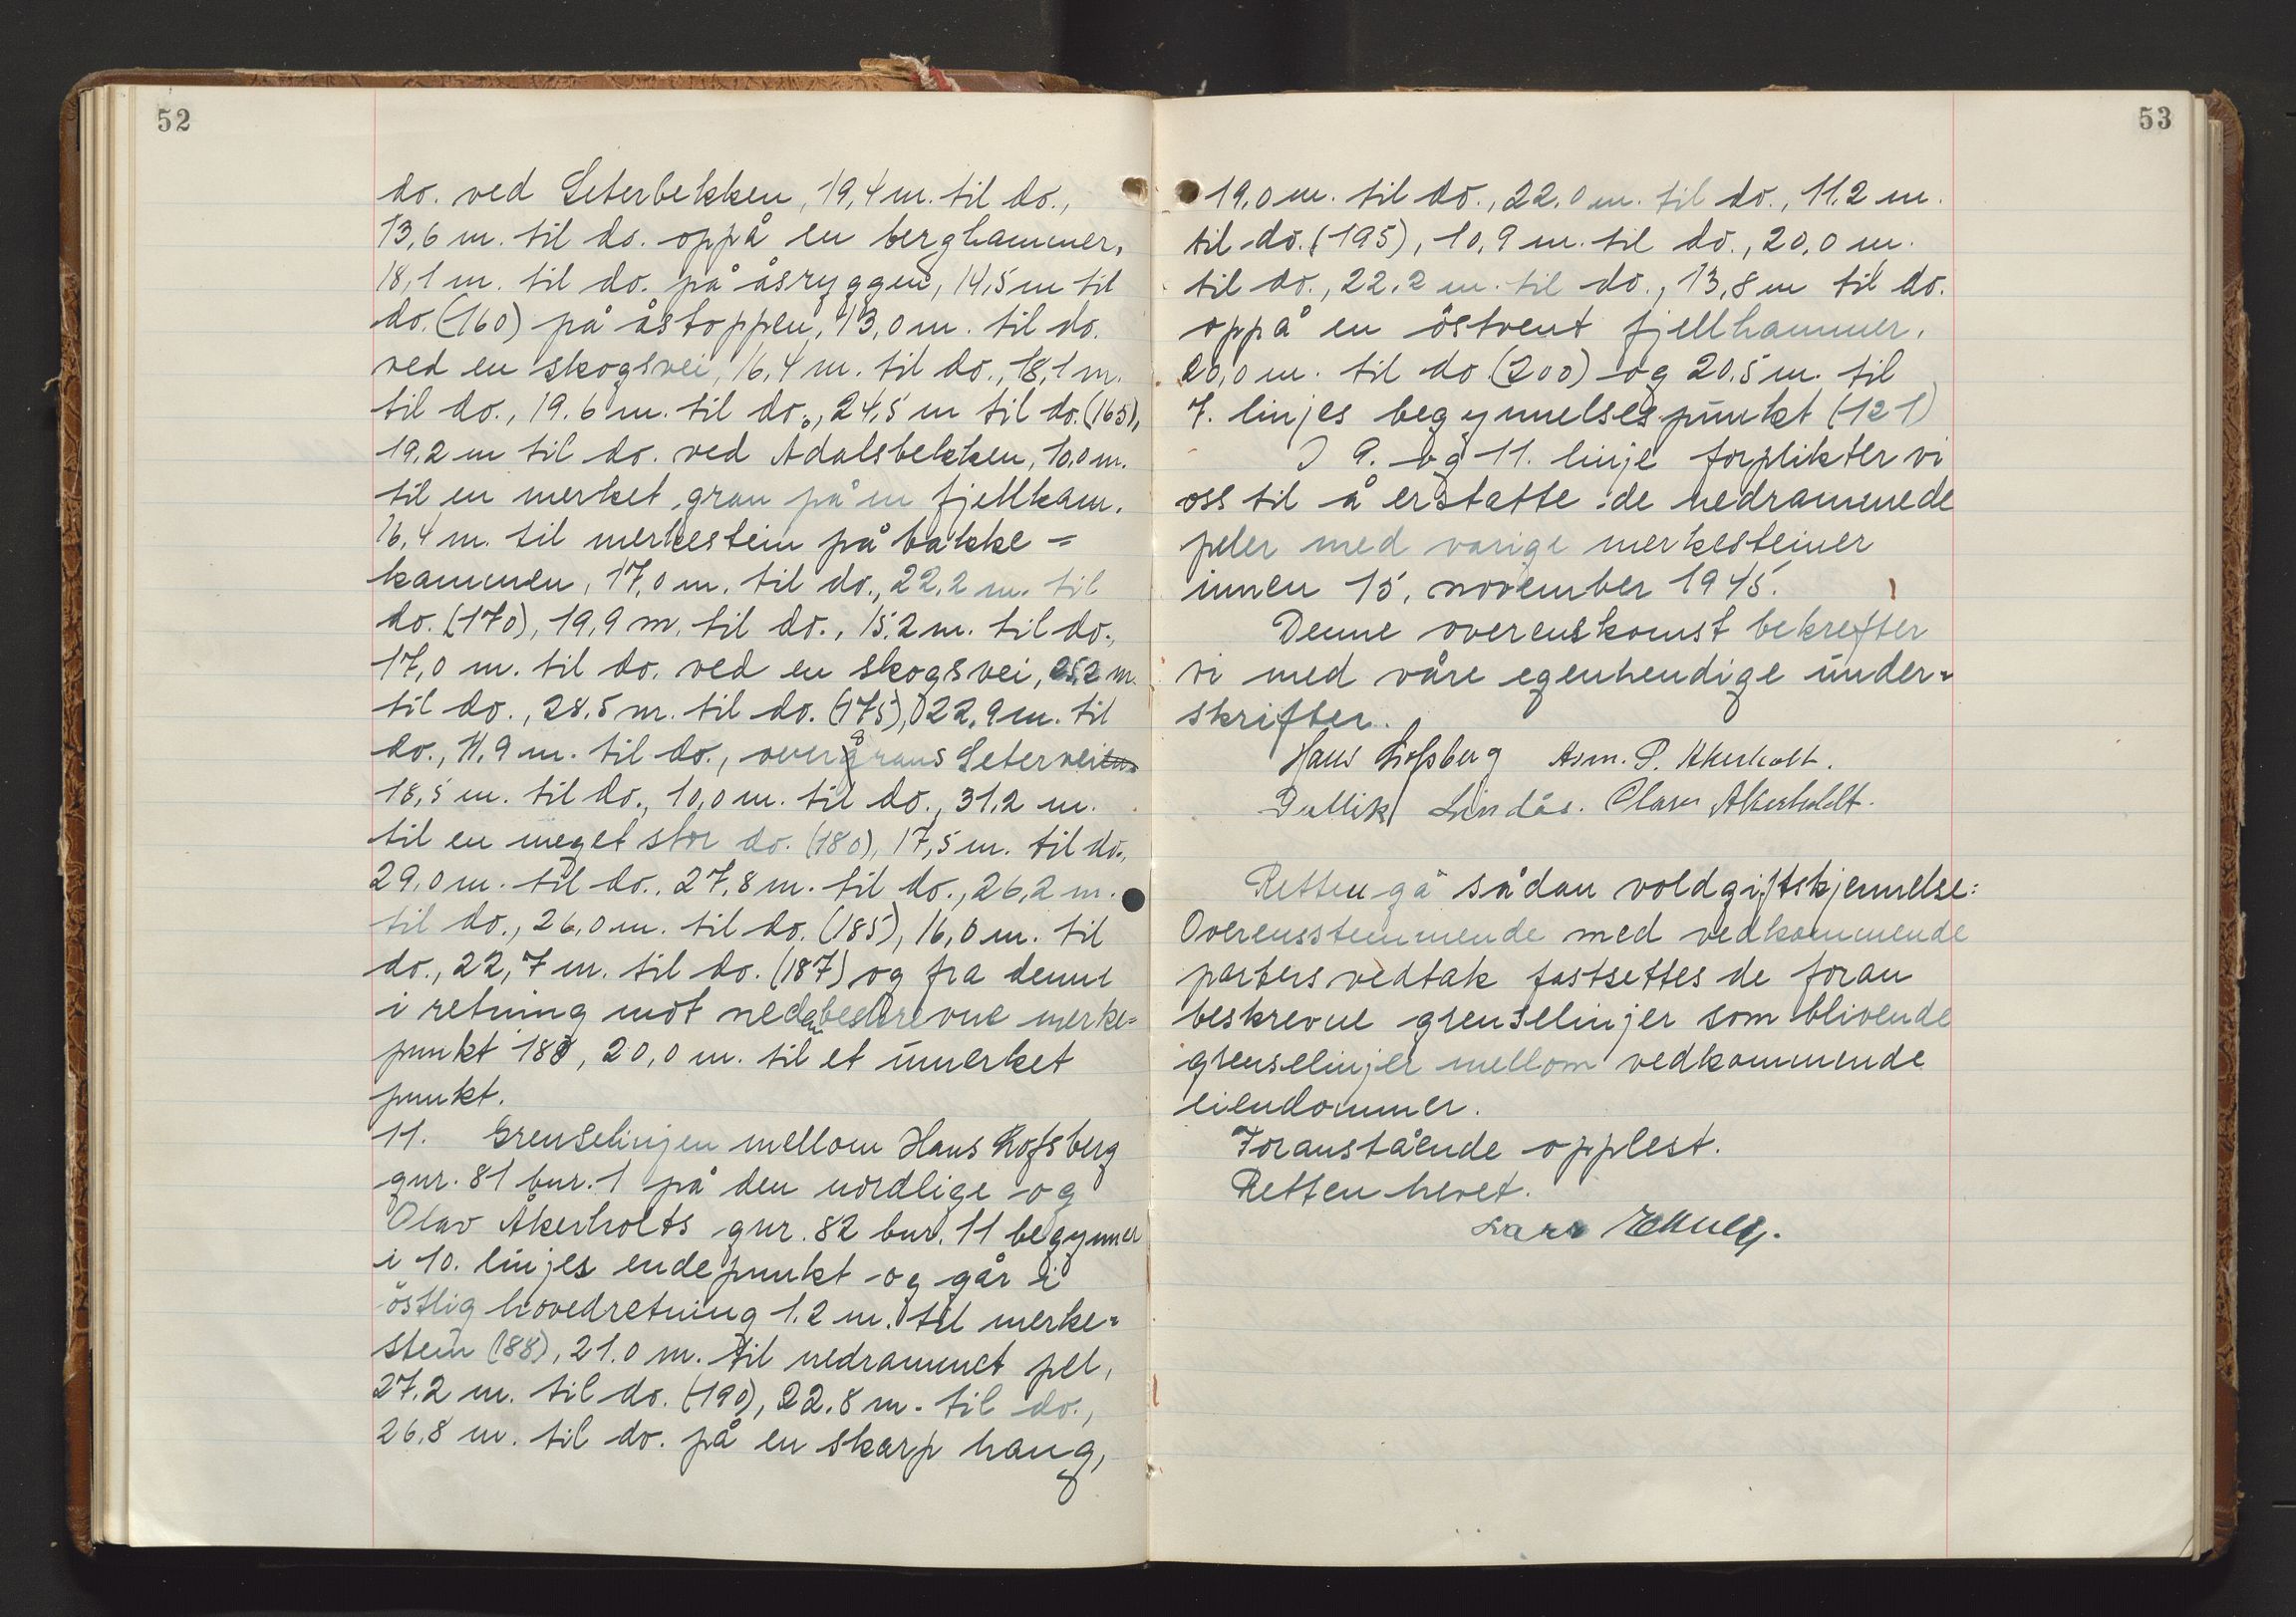 52
do. ved Seterbekken, 19,4 m. til do.,
13,6 m. til do. oppå en berghammer,
18,1 m. til do. på åsryggen, 14,5 m til
do. (160) på åstoppen, 13,0 m. til do.
ved en skogsvei, 16,4 m. til do., 18,1 m.
til do., 19,6 m. til do., 24,5 m til do. (165),
19,2 m til do. ved Ådalsbekken, 10,0 m.
til en merket gran på en fjellkam.
16,4 m. til merkestein på bakke=
kammen, 17,0 m. til do., 22,2 m. til
do. (170), 19,9 m. til do., 15,2 m. til do.,
17,0 m. til do. ved en skogsvei, 25,2 m.
til do., 28,5 m. til do. (175), 22,9 m. til
do., 11,9 m. til do., over grans Seterveien
18,5 m. til do., 10,0 m. til do., 31,2 m.
til en meget stor do. (180), 17,5 m. til do.,
29,0 m. til do., 27,8 m. til do., 26,2 m.
til do., 26,0 m. til do. (185), 16,0 m. til
do., 22,7 m. til do. (187) og fra denne
i retning mot nedenbeskrevne merke=
punkt 188, 20,0 m. til et umerket
punkt.
11. Grenselinjen mellom Hans Rofsberg
gnr. 81 bnr. 1 på den nordlige og
Olav Åkerholts gnr. 82 bnr. 11 begynner
i 10. linjes endepunkt og går i
östlig hovedretning 1,2 m. til merke=
stein (188), 21,0 m. til nedrammet pel,
27,2 m. til do. (190), 22,8 m. til do.,
26,8 m. til do. på en skarp haug,
53
19,0 m. til do., 22,0 m. til do., 11,2 m.
til do. (195), 10,9 m. til do., 20,0 m.
til do., 22,2 m. til do., 13,8 m til do.
oppå en östvent fjellhammer,
20,0 m. til do (200) og 20,5 m. til
7. linjes begynnelsespunkt (121)
I 9. og 11. linje forplikter vi
oss til å erstatte de nedrammede
peler med varige merkesteiner
innen 15. november 1945.
Denne overenskomst bekrefter
vi med våre egenhendige under=
skrifter.
Hans Rofsberg Asm. P. Akerholt.
Lindås. Olav Akerholdt.
Retten ga sådan voldgiftskjennelse:
Overensstemmende med vedkommende
parters vedtak fastsettes de foran
beskrevne grenselinjer som blivende
grenselinjer mellom vedkommende
eiendommer.
Foranstående opplest.
Retten hevet.
Lars